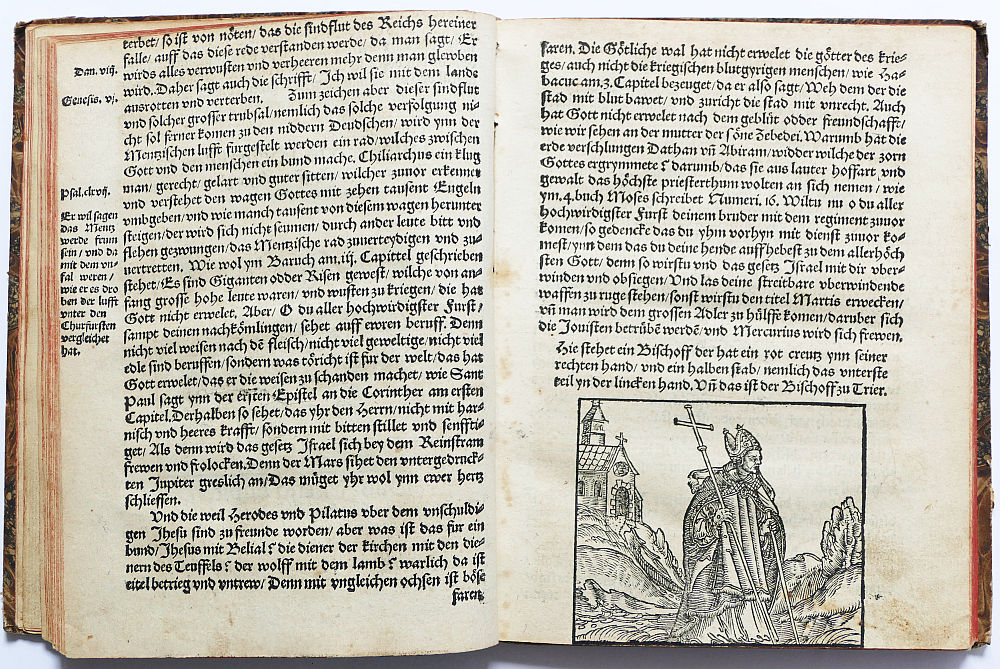 terbet/ so ist von nöten/ das die sindflut des Reichs hereiner
falle/ auff das diese rede verstanden werde/ da man sagt/ Er
wirds alles verwusten und verheeren mehr denn man glewben
wird. Daher sagt auch die schrifft/ Ich wil sie mit dem lande
ausrotten vnd verterben. Zum zeichen aber dieser sindflut
vnd solcher grosser trubsal/ nemlich das solche verfolgung ni-
cht sol ferner komen zu den niddern Deudschen/ wird ynn der
Mentzischen lufft furgestelt werden ein rad/ wilches zwischen
Gott vnd den menschen ein bund mache. Chiliarchus ein klug
man/ gerecht/ gelart vnd guter sitten/ wilcher zuuor erkennet
vnd verstehet den wagen Gottes mit zehen tausent Engeln
vmbgeben/ vnd wie manch tausent von diesem wagen herunter
steigen/ der wird sich nicht seumen/ durch ander leute bitt vnd
flehen gezwungen/ das Mentzische rad zuuerteydigen vnd zu-
uertretten. Wie wol ym Baruch am .iij. Capittel geschrieben
stehet/ Es sind Giganten odder Risen gewest/ wilche von an-
fang grosse hohe leute waren/ vnd wusten zu kriegen/ die hat
Gott nicht erwelet, Aber/ O du aller hochwirdigster Furst/
sampt deinen nachkömlingen/ sehet auff ewren beruff. Denn
nicht viel weisen nach dẽ fleisch/ nicht viel geweltige/ nicht viel
edle sind beruffen/ sondern was töricht ist fur der welt/ das hat
Gott erwelet/ das er die weisen zu schanden machet/ wie Sant
Paul sagt ynn der ersten Epistel an die Corinther am ersten
Capitel. Derhalben so sehet/ das yhr den Herrn/ nicht mit har-
nisch vnd heeres krafft/ sondern mit bitten stillet vnd senffti-
get/ Als denn wird das gesetz Israel sich bey dem Reinstram
frewen vnd frolocken. Denn der Mars sihet den vntergedruck-
ten Jupiter greslich an/ Das müget yhr wol ynn ewer hertz
schliessen.
Vnd die weil Herodes vnd Pilatus vber dem vnschuldi-
gen Jhesu sind zu freunde worden/ aber was ist das fur ein
bund/ Jhesus mit Belial? die diener der kirchen mit den die-
nern des Teuffels? der wolff mit dem lamb? warlich da ist
eitel betrieg vnd vntrew/ Denn mit vngleichen ochsen ist böse
faren.
Dan. viij.
Genesis. vj.
Psal. lxvij.
Er wil sagen
das Mentz
werde frum
sein/ vnd da
mit dem vn-
fal weren/
wie er es dro
ben der lufft
vnter den
Churfursten
vergleichet
hat.
faren. Die Götliche wal hat nicht erwelet die götter des krie-
ges/ auch nicht die kriegischen blutgyrigen menschen/ wie Ha-
bacuc am .2. Capitel bezeuget/ da er also sagt/ Weh dem der die
stad mit blut bawet/ vnd zuricht die stad mit vnrecht. Auch
hat Gott nicht erwelet nach dem geblüt odder freundschafft/
wie wir sehen an der mutter der söne Zebedei, Warumb hat die
erde verschlungen Dathan vñ Abiram/ widder wilche der zorn
Gottes ergrymmete? darumb/ das sie aus lauter hoffart vnd
gewalt das höchste priesterthum wolten an sich nemen/ wie
ym .4. buch Moses schreibet Numeri. 16. Wiltu nu o du aller
hochwirdigster Furst deinem bruder mit dem regiment zuuor
komen/ so gedencke das du yhm vorhyn mit dienst zuuor ko-
mest/ ynn dem das du deine hende auffhebest zu dem allerhöch
sten Gott/ denn so wirstu vnd das gesetz Israel mit dir vber-
winden vnd obsiegen/ Vnd las deine streitbare vberwindende
waffen zu ruge stehen/ sonst wirstu den titel Martis erwecken/
vñ man wird dem grossen Adler zu hülffe komen/ daruber sich
die Jouisten betrübẽ werdẽ/ vnd Mercurius wird sich frewen.
Hie stehet ein Bischoff der hat ein rot creutz ynn seiner
rechten hand/ vnd ein halben stab/ nemlich das vnterste
teil yn der lincken hand. Vñ das ist der Bischoff zu Trier.